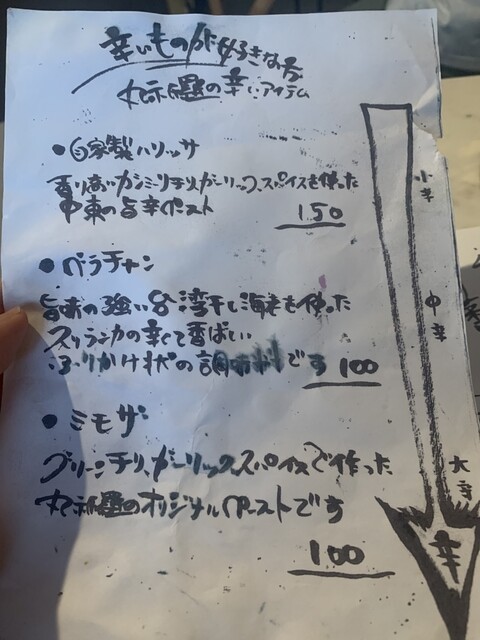 辛いものが好きな方
の辛いアイテム
・自家製ハリッサ
香り高いカシミリチリ、ガーリック、スパイスを使った
中東の旨辛ペースト
150
・ベラチャン
旨味の強い台湾干し海老を使った
スリランカの辛くて香ばしい
ふりかけ状の調味料です
100
・ミモザ
グリーンチリ、ガーリック、スパイスで作った
のオリジナルペーストです
100
小辛
中辛
大辛
辛